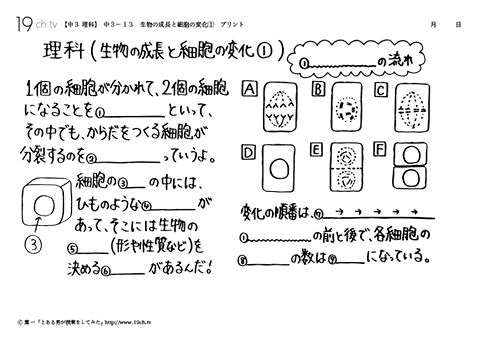 19 ch.tv 【中3 理科】 中3－13 生物の成長と細胞の変化① プリント 月 日
理科(生物の成長と細胞の変化①)
1個の細胞が分かれて、2個の細胞
になることを① といって、
その中でも、からだをつくる細胞が
分裂するのを② っていうよ。
細胞の③ の中には、
ひものような④ が
あって、そこには生物の
⑤ (形や性質など)を
決める⑥ があるんだ!
③
① の流れ
A B C
D E F
変化の順番は、⑦ → → → → →
① の前と後で、各細胞の
⑧ の数は⑨ になっている。
© 葉一「とある男が授業をしてみた」http://www.19ch.tv